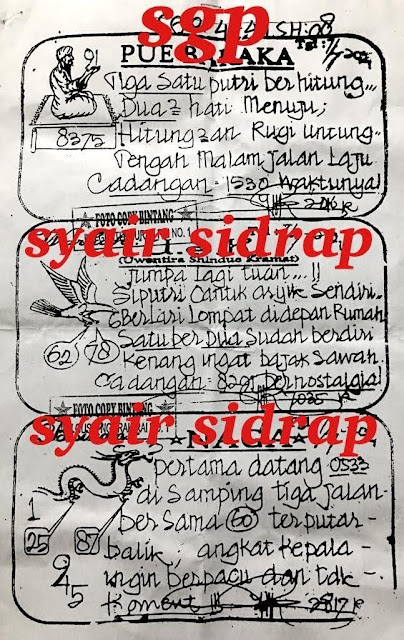 sgp
SH:08
PUE
AKA
91
Tiga Satu putri berhitung...
Dua² hati Menuju;
8375
Hitungzan Rugi untung..
Tengah Malam jalan Laju
Cadangan = 1530 Waktunya!
FOTO COPY BINTANG
NO. 1
syair sidrap
(Wentira Shindus Kramat)
Jumpa lagi tuan...!!
Siputri Cantik asyik Sendiri..
Berlari Lompat didepan Rumah
62 78
Satu ber Dua Sudah berdiri
Kenang ingat bajak Sawah.
Cadangan = 8291 Bernostalgia!
7035
FOTO COPY BINTANG
syair sidrap
NAGA
pertama datang 0533
di Samping tiga jalan-
1
ber Sama 60 terputar-
25 87
balik; angkat kepala-
945
ingin berpacu dan tdk-
Koment !!!
2817